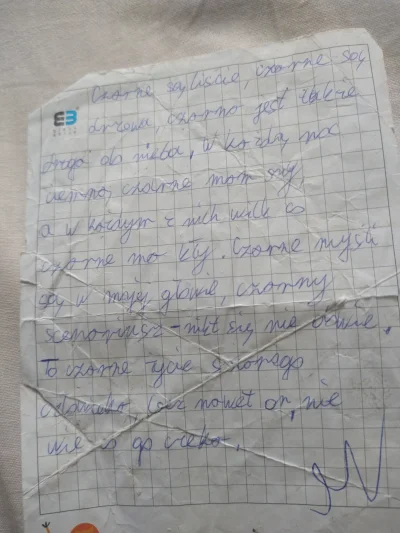 E3
Czarne są liście, czarne są
drzewa, czarna jest także
droga do nieba, w każdą noc
ciemną, czarne mam sny
a w każdym z nich wilk co
czarne ma kły. Czarne myśli
są w mojej głowie, czarny
scenariusz - nikt się nie dowie.
To czarne życie czarnego
człowieka, lecz nawet on nie
wie co go czeka.